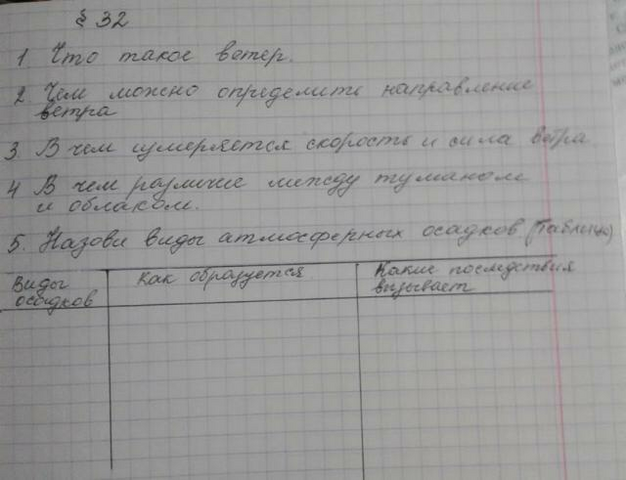 § 32
1 Что такое ветер.
2 Чем можно определить направление
ветра
3. В чем измеряется скорость и сила ветра
4 В чем различие между туманом
и облаком.
5. Назови виды атмосферных осадков (таблица)
Виды
осадков
Как образуется
Какие последствия
вызывает